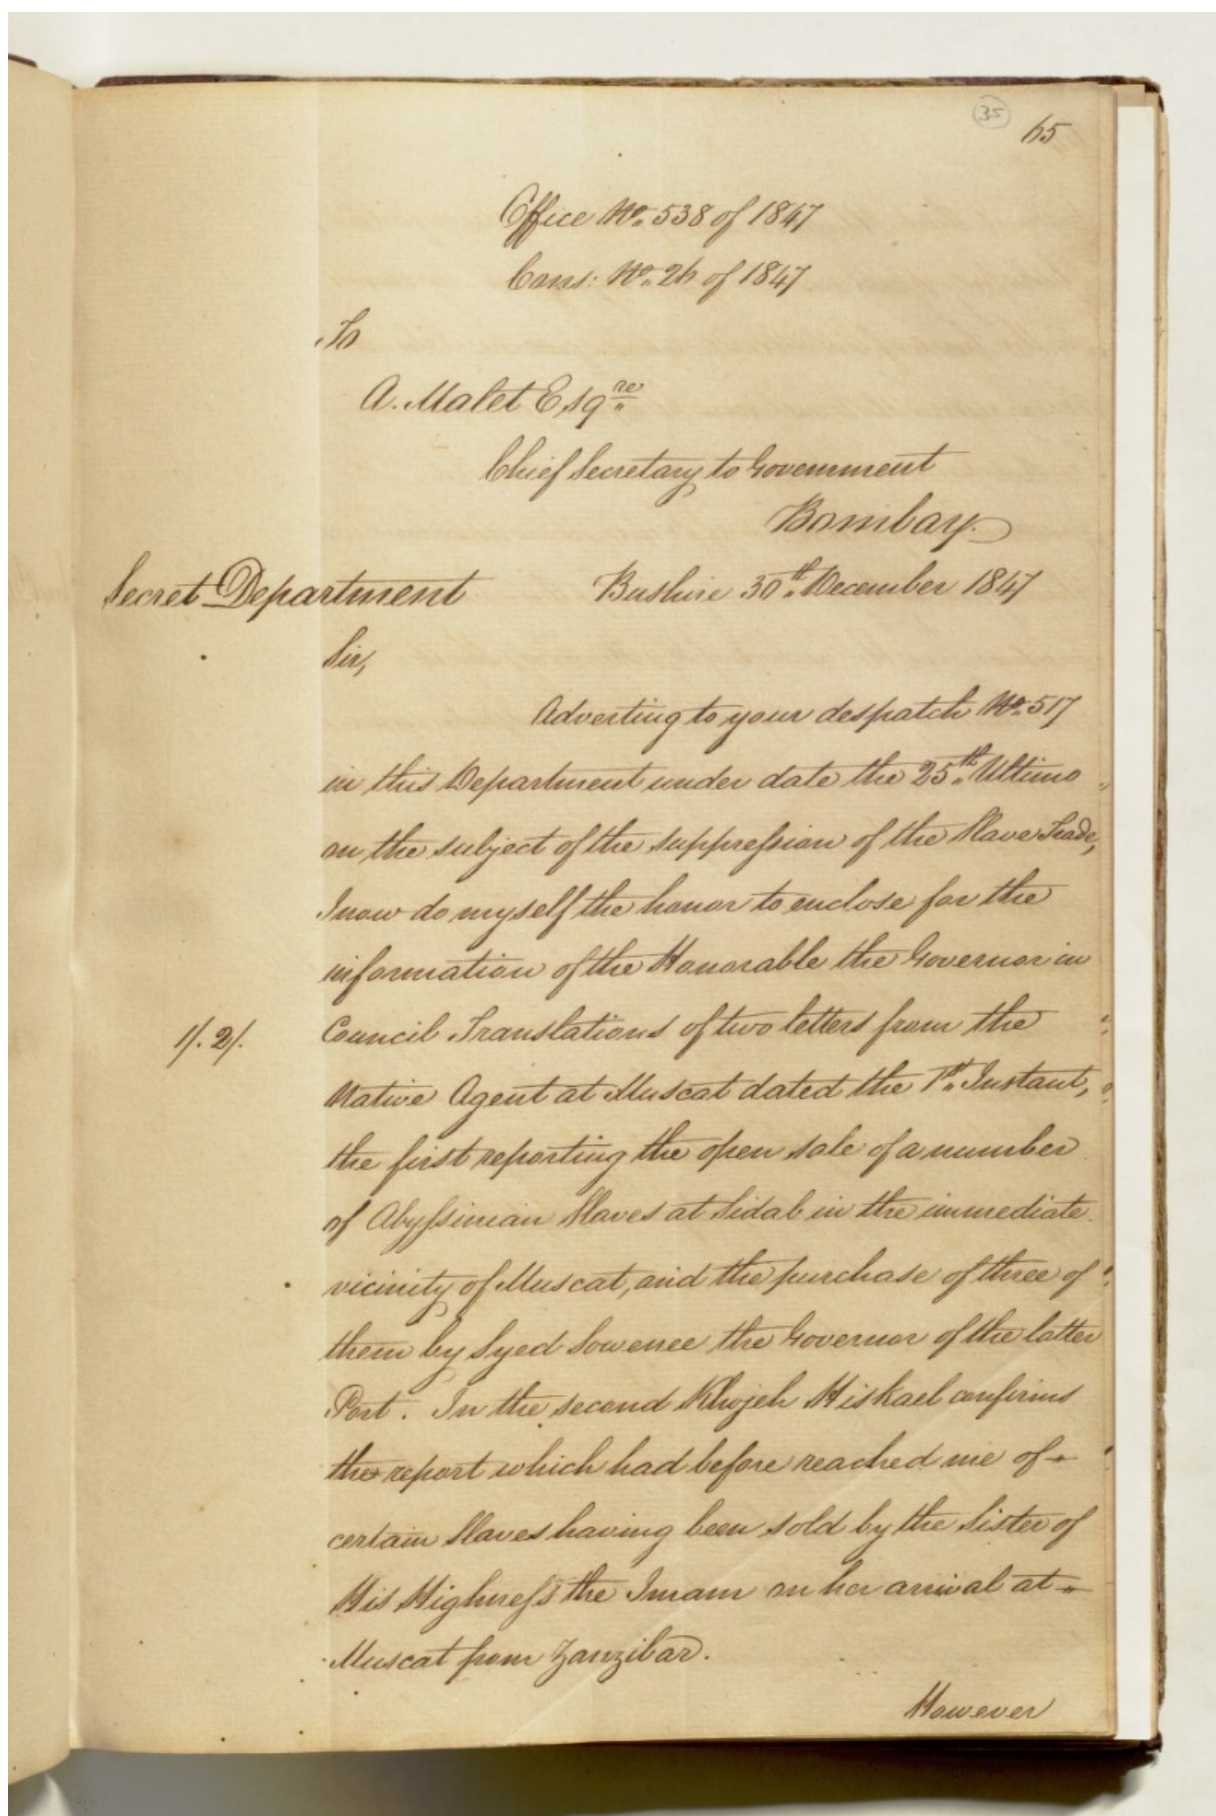 35
65
Office No. 538 of 1847
Cons: No. 26 of 1847
To
A. Malet Esqre
Chief Secretary to Government
Bombay.
Secret Department Bushire 30th December 1847
Sir,
Adverting to your despatch No. 517
in this Department under date the 25th Ultimo
on the subject of the suppression of the Slave Trade,
I now do myself the honor to enclose for the
information of the Honorable the Governor in
1/. 2/. Council Translations of two letters from the
Native Agent at Muscat dated the 1st Instant,
the first reporting the open sale of a number
of Abyssinian Slaves at Sidab in the immediate
vicinity of Muscat, and the purchase of three of
them by Syed Soweenee the Governor of the latter
Port. In the second Khojeh Hiskael confirms
the report which had before reached me of
certain Slaves having been sold by the Sister of
His Highness the Imam on her arrival at
Muscat from Zanzibar.
However